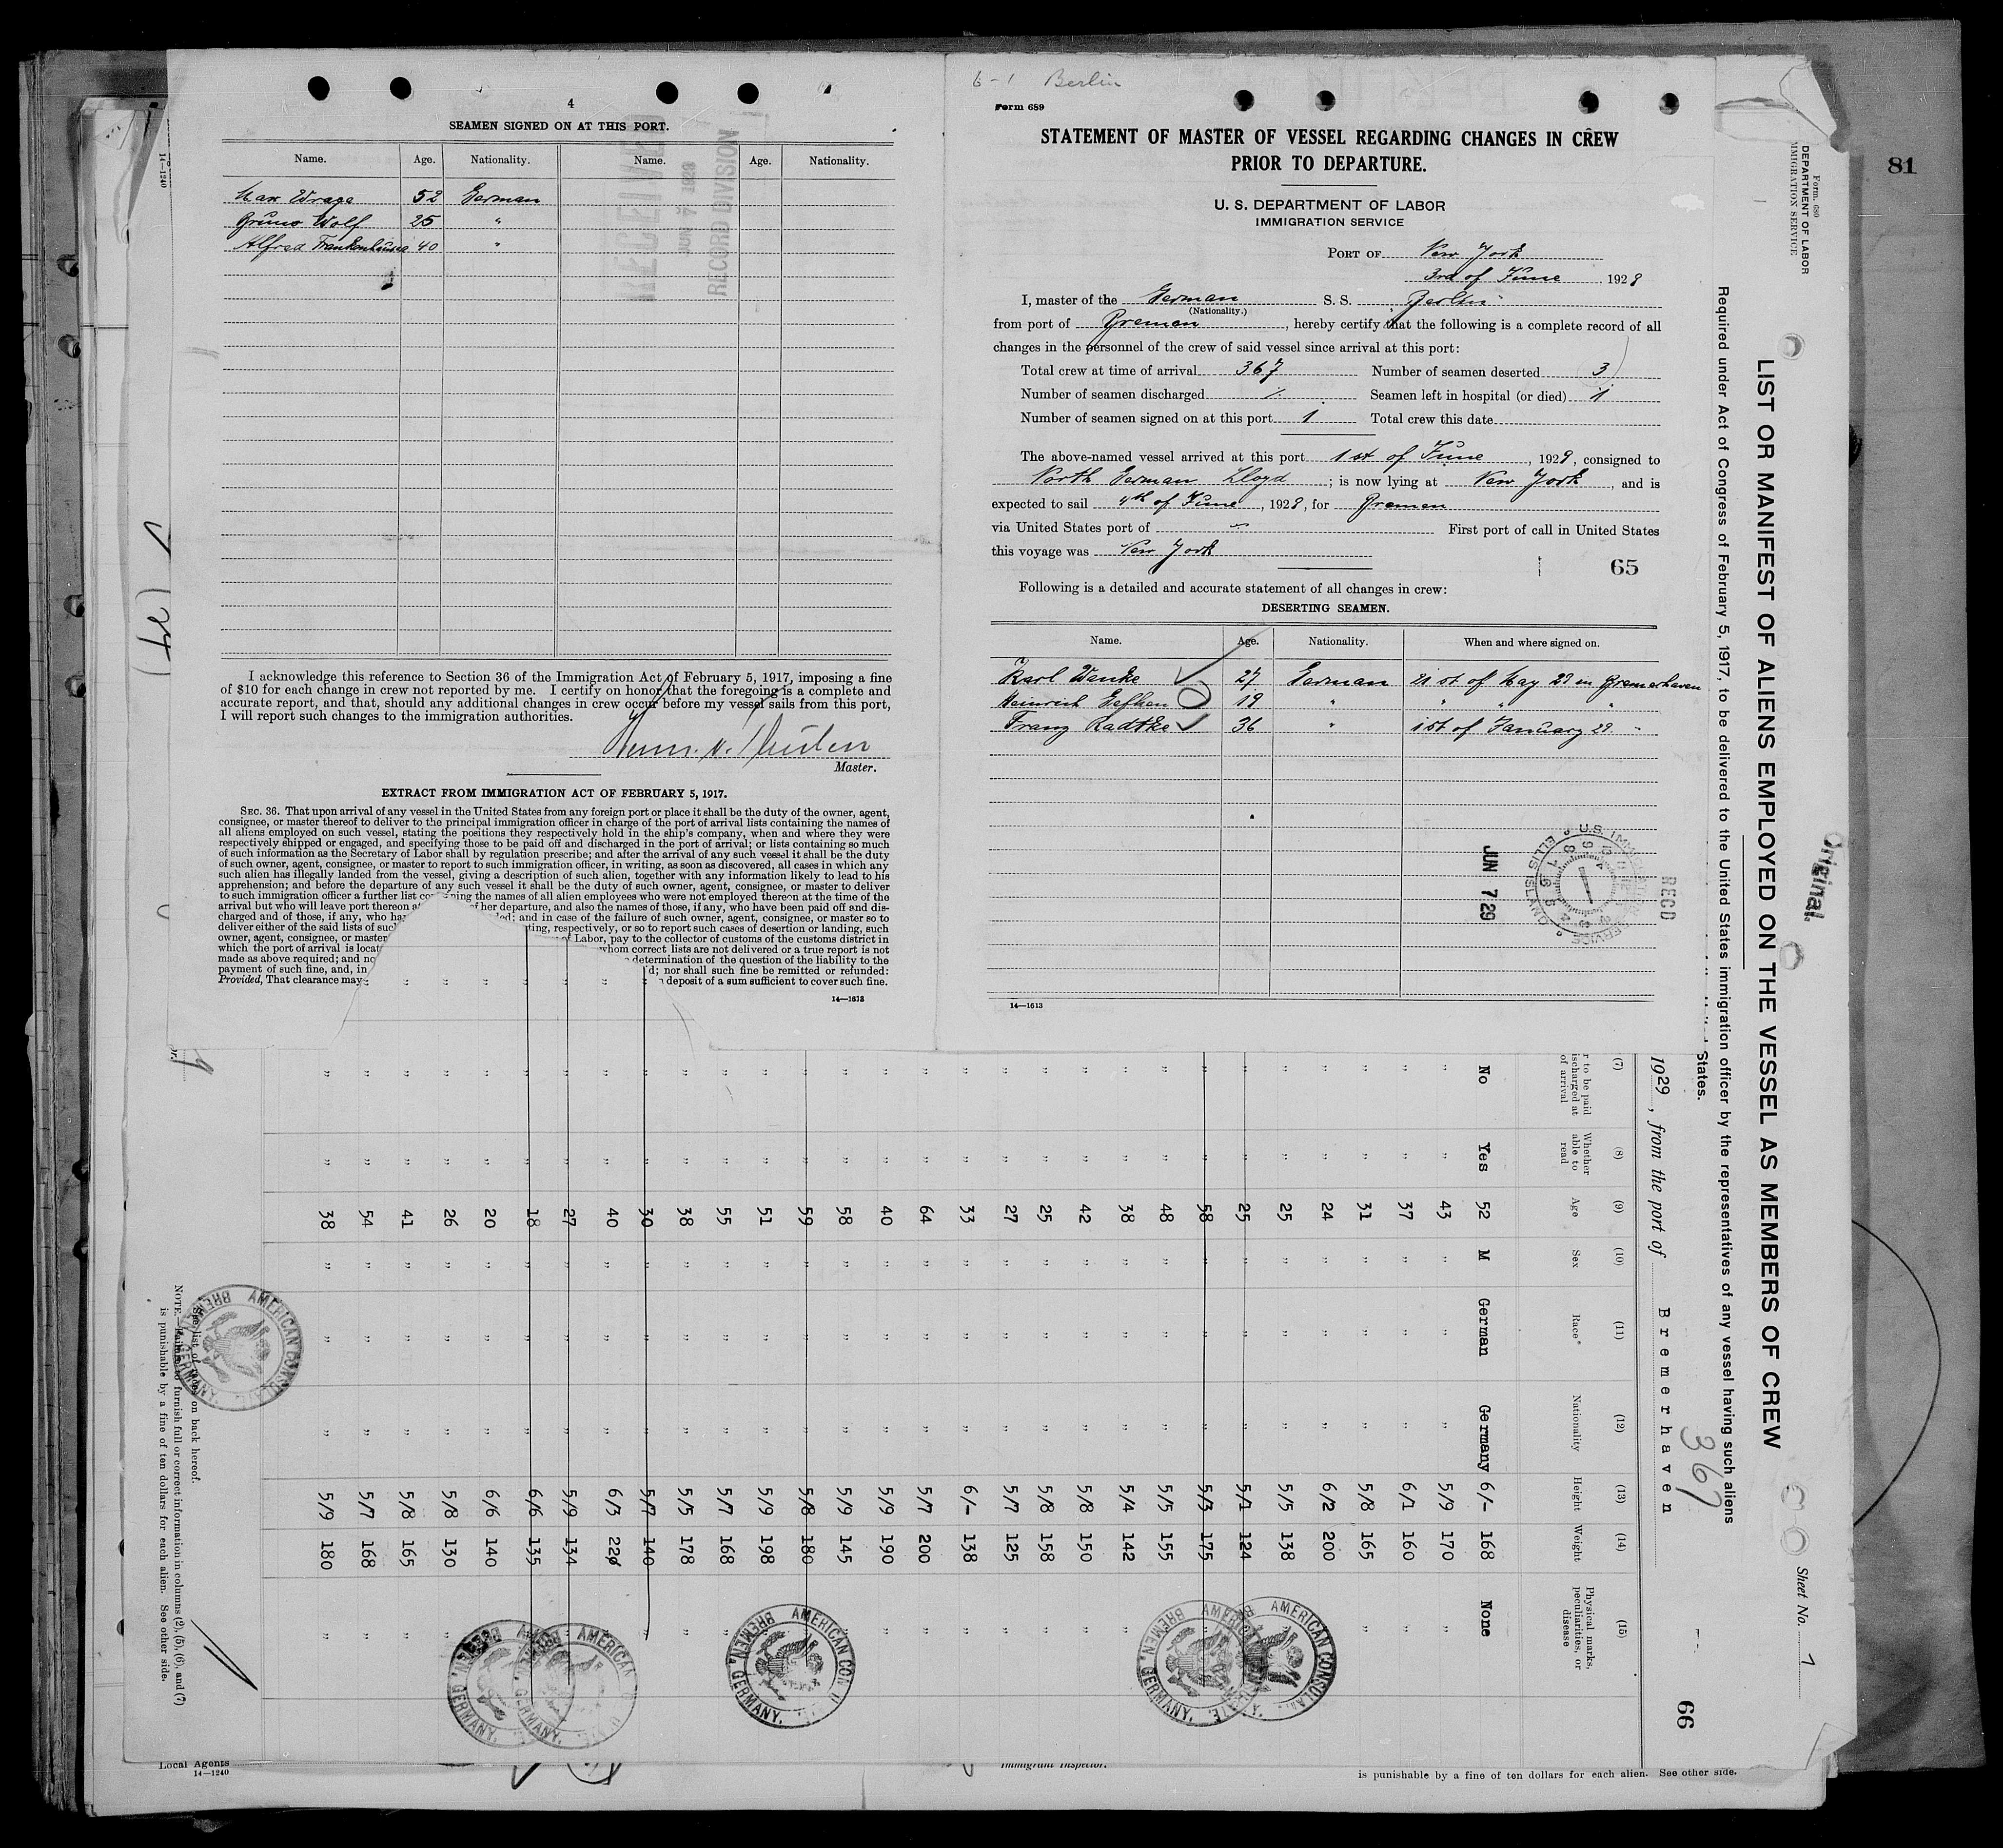 4
SEAMEN SIGNED ON AT THIS PORT.
Name. Age. Nationality. Name. Age. Nationality.
Max Wrage 52 German
Bruno Wolf 25 "
Alfred Frankenhäuser 40 "
RECEIVED
JUN 7 1929
RECORD DIVISION
I acknowledge this reference to Section 36 of the Immigration Act of February 5, 1917, imposing a fine
of $10 for each change in crew not reported by me. I certify on honor that the foregoing is a complete and
accurate report, and that, should any additional changes in crew occur before my vessel sails from this port,
I will report such changes to the immigration authorities.
Master.
EXTRACT FROM IMMIGRATION ACT OF FEBRUARY 5, 1917.
SEC. 36. That upon arrival of any vessel in the United States from any foreign port or place it shall be the duty of the owner, agent,
consignee, or master thereof to deliver to the principal immigration officer in charge of the port of arrival lists containing the names of
all aliens employed on such vessel, stating the positions they respectively hold in the ship's company, when and where they were
respectively shipped or engaged, and specifying those to be paid off and discharged in the port of arrival; or lists containing so much
of such information as the Secretary of Labor shall by regulation prescribe; and after the arrival of any such vessel it shall be the duty
of such owner, agent, consignee, or master to report to such immigration officer, in writing, as soon as discovered, all cases in which any
such alien has illegally landed from the vessel, giving a description of such alien, together with any information likely to lead to his
apprehension; and before the departure of any such vessel it shall be the duty of such owner, agent, consignee, or master to deliver
to such immigration officer a further list containing the names of all alien employees who were not employed thereon at the time of the
arrival but who will leave port thereon a of her departure, and also the names of those, if any, who have been paid off and dis-
charged and of those, if any, who ha ed; and in case of the failure of such owner, agent, consignee, or master so to
deliver either of the said lists of suc ting, respectively, or so to report such cases of desertion or landing, such
owner, agent, consignee, or master of Labor, pay to the collector of customs of the customs district in
which the port of arrival is locat whom correct lists are not delivered or a true report is not
made as above required; and no determination of the question of the liability to the
payment of such fine, and, in 'd; nor shall such fine be remitted or refunded:
Provided, That clearance may deposit of a sum sufficient to cover such fine.
14—1613
6-1 Berlin
Form 689
STATEMENT OF MASTER OF VESSEL REGARDING CHANGES IN CREW
PRIOR TO DEPARTURE.
U. S. DEPARTMENT OF LABOR
IMMIGRATION SERVICE
PORT OF New York
3rd of June 1929
I, master of the German S. S. "Berlin"
(Nationality.)
from port of Bremen, hereby certify that the following is a complete record of all
changes in the personnel of the crew of said vessel since arrival at this port:
Total crew at time of arrival 367 Number of seamen deserted 3
Number of seamen discharged Seamen left in hospital (or died) 1
Number of seamen signed on at this port 1 Total crew this date
The above-named vessel arrived at this port 1st of June, 1929, consigned to
North German Lloyd; is now lying at New York, and is
expected to sail 4th of June, 1929, for Bremen
via United States port of First port of call in United States
this voyage was New York
65
Following is a detailed and accurate statement of all changes in crew:
DESERTING SEAMEN.
Name. Age. Nationality. When and where signed on.
Karl Wanke 27 German 21st of May 29 in Bremerhaven
Heinrich Gefken 19 " " " "
Franz Radtke 36 " 1st of January 29 "
RECD
JUN 7 29
U.S. IMMIGRATION SERVICE ELLIS ISLAND
14—1613
81
Form 689
DEPARTMENT OF LABOR
IMMIGRATION SERVICE
Original.
Sheet No. 1
LIST OR MANIFEST OF ALIENS EMPLOYED ON THE VESSEL AS MEMBERS OF CREW
Required under Act of Congress of February 5, 1917, to be delivered to the United States immigration officer by the representatives of any vessel having such aliens
States.
367
66
1929, from the port of Bremerhaven
(7) (8) (9) (10) (11) (12) (13) (14) (15)
r to be paid
ischarged at
of arrival
Whether
able to
read
Age
Sex
Race*
Nationality
Height
Weight
Physical marks,
peculiarities, or
disease
No Yes 52 M German Germany 6/- 168 None
" " 43 " " " 5/9 170 "
" " 37 " " " 6/1 160 "
" " 31 " " " 5/8 165 "
" " 24 " " " 6/2 200
" " 25 " " " 5/5 138
" " 25 " " " 5/1 124
" " 58 " " " 5/3 175
" " 48 " " " 5/5 155
" " 38 " " " 5/4 142
" " 42 " " " 5/8 150 "
" " 25 " " " 5/8 158 "
" " 27 " " " 5/7 125 "
" " 33 " " " 6/- 138 "
" " 64 " " " 5/7 200 "
" " 40 " " " 5/9 190 "
" " 58 " " " 5/9 145 "
" " 59 " " " 5/8 180
" " 51 " " " 5/9 198
" " 55 " " " 5/7 168 "
" " 38 " " " 5/5 178 "
" " 30 " " " 5/7 140
" " 40 " " " 6/3 220
" " 27 " " " 5/9 134
" " 18 " " " 6/6 135
" " 20 " " " 6/6 140
" " 26 " " " 5/8 130 "
" " 41 " " " 5/8 165 "
" " 54 " " " 5/7 168 "
" " 38 " " " 5/9 180 "
AMERICAN CONSULATE, BREMEN, GERMANY.
AMERICAN CONSULATE, BREMEN, GERMANY.
AMERICAN CONSULATE, BREMEN, GERMANY.
AMERICAN CONSULATE, BREMEN, GERMANY.
AMERICAN CONSULATE, BREMEN, GERMANY.
AMERICAN CONSULATE, BREMEN, GERMANY.
See list of races on back hereof.
NOTE.—Failure to furnish full or correct information in columns (2), (5), (6), and (7)
is punishable by a fine of ten dollars for each alien. See other side.
14—1240
Local Agents
14—1240
Immigrant Inspector.
is punishable by a fine of ten dollars for each alien. See other side.